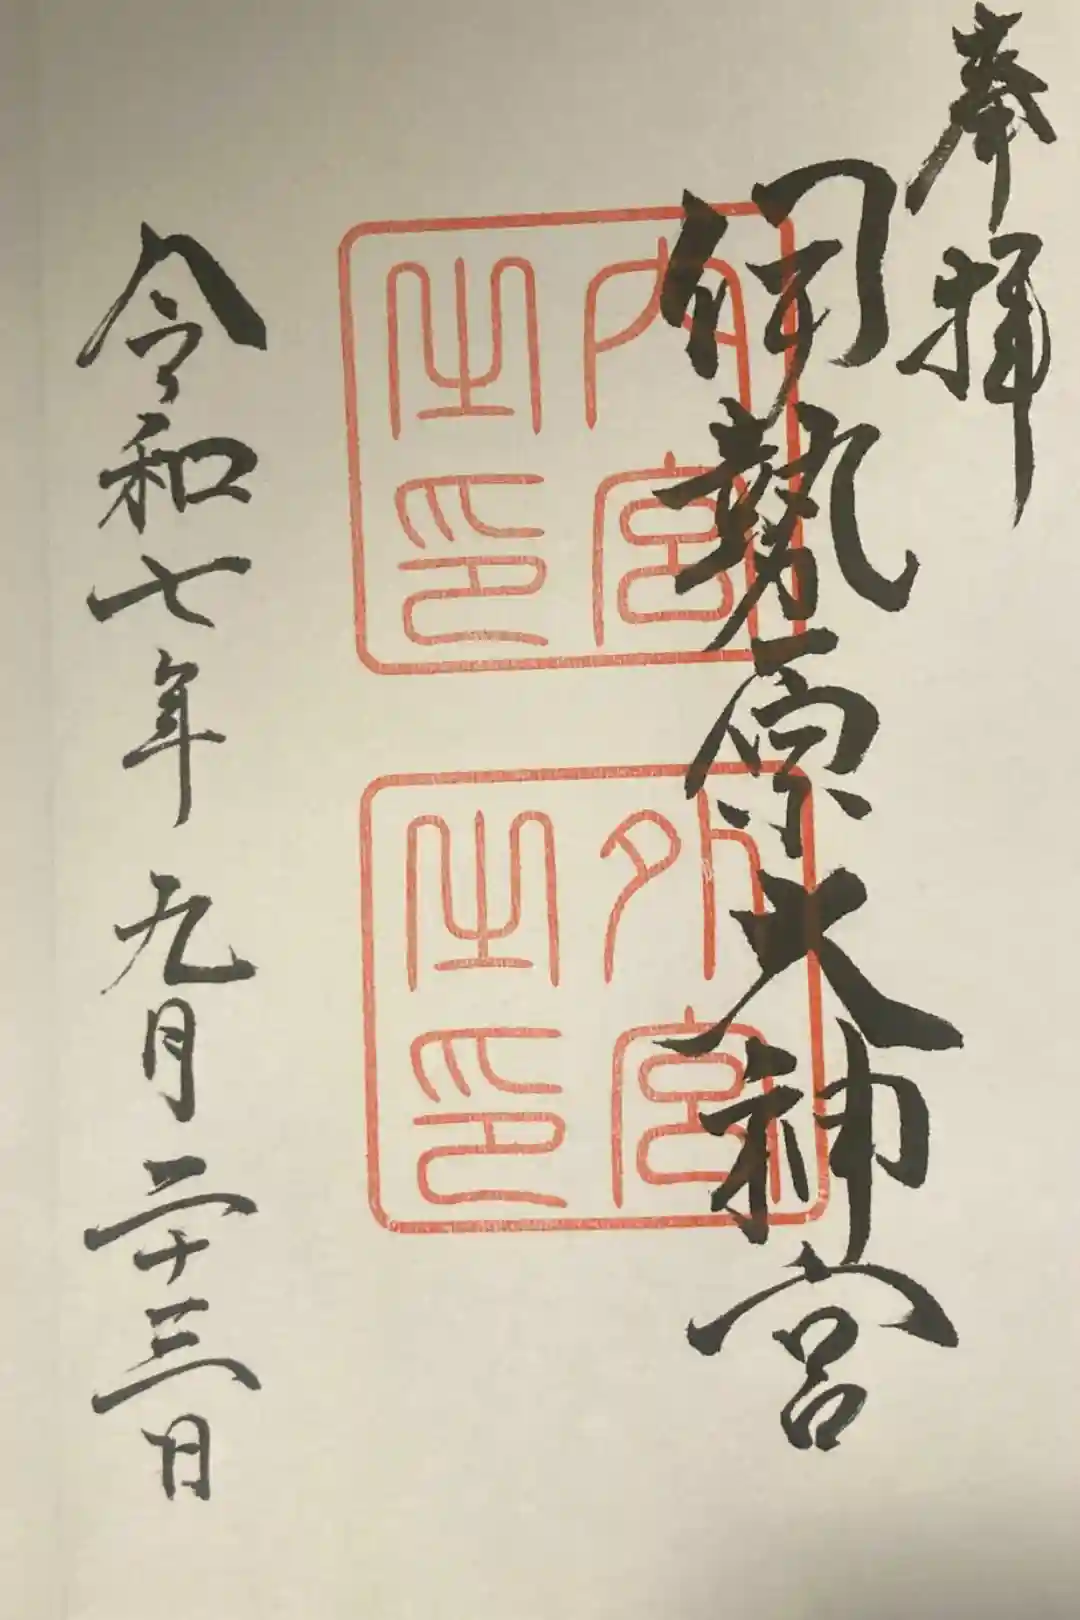 奉拝
伊勢原大神宮
内宮
之印
外宮
之印
令和七年九月二十三日